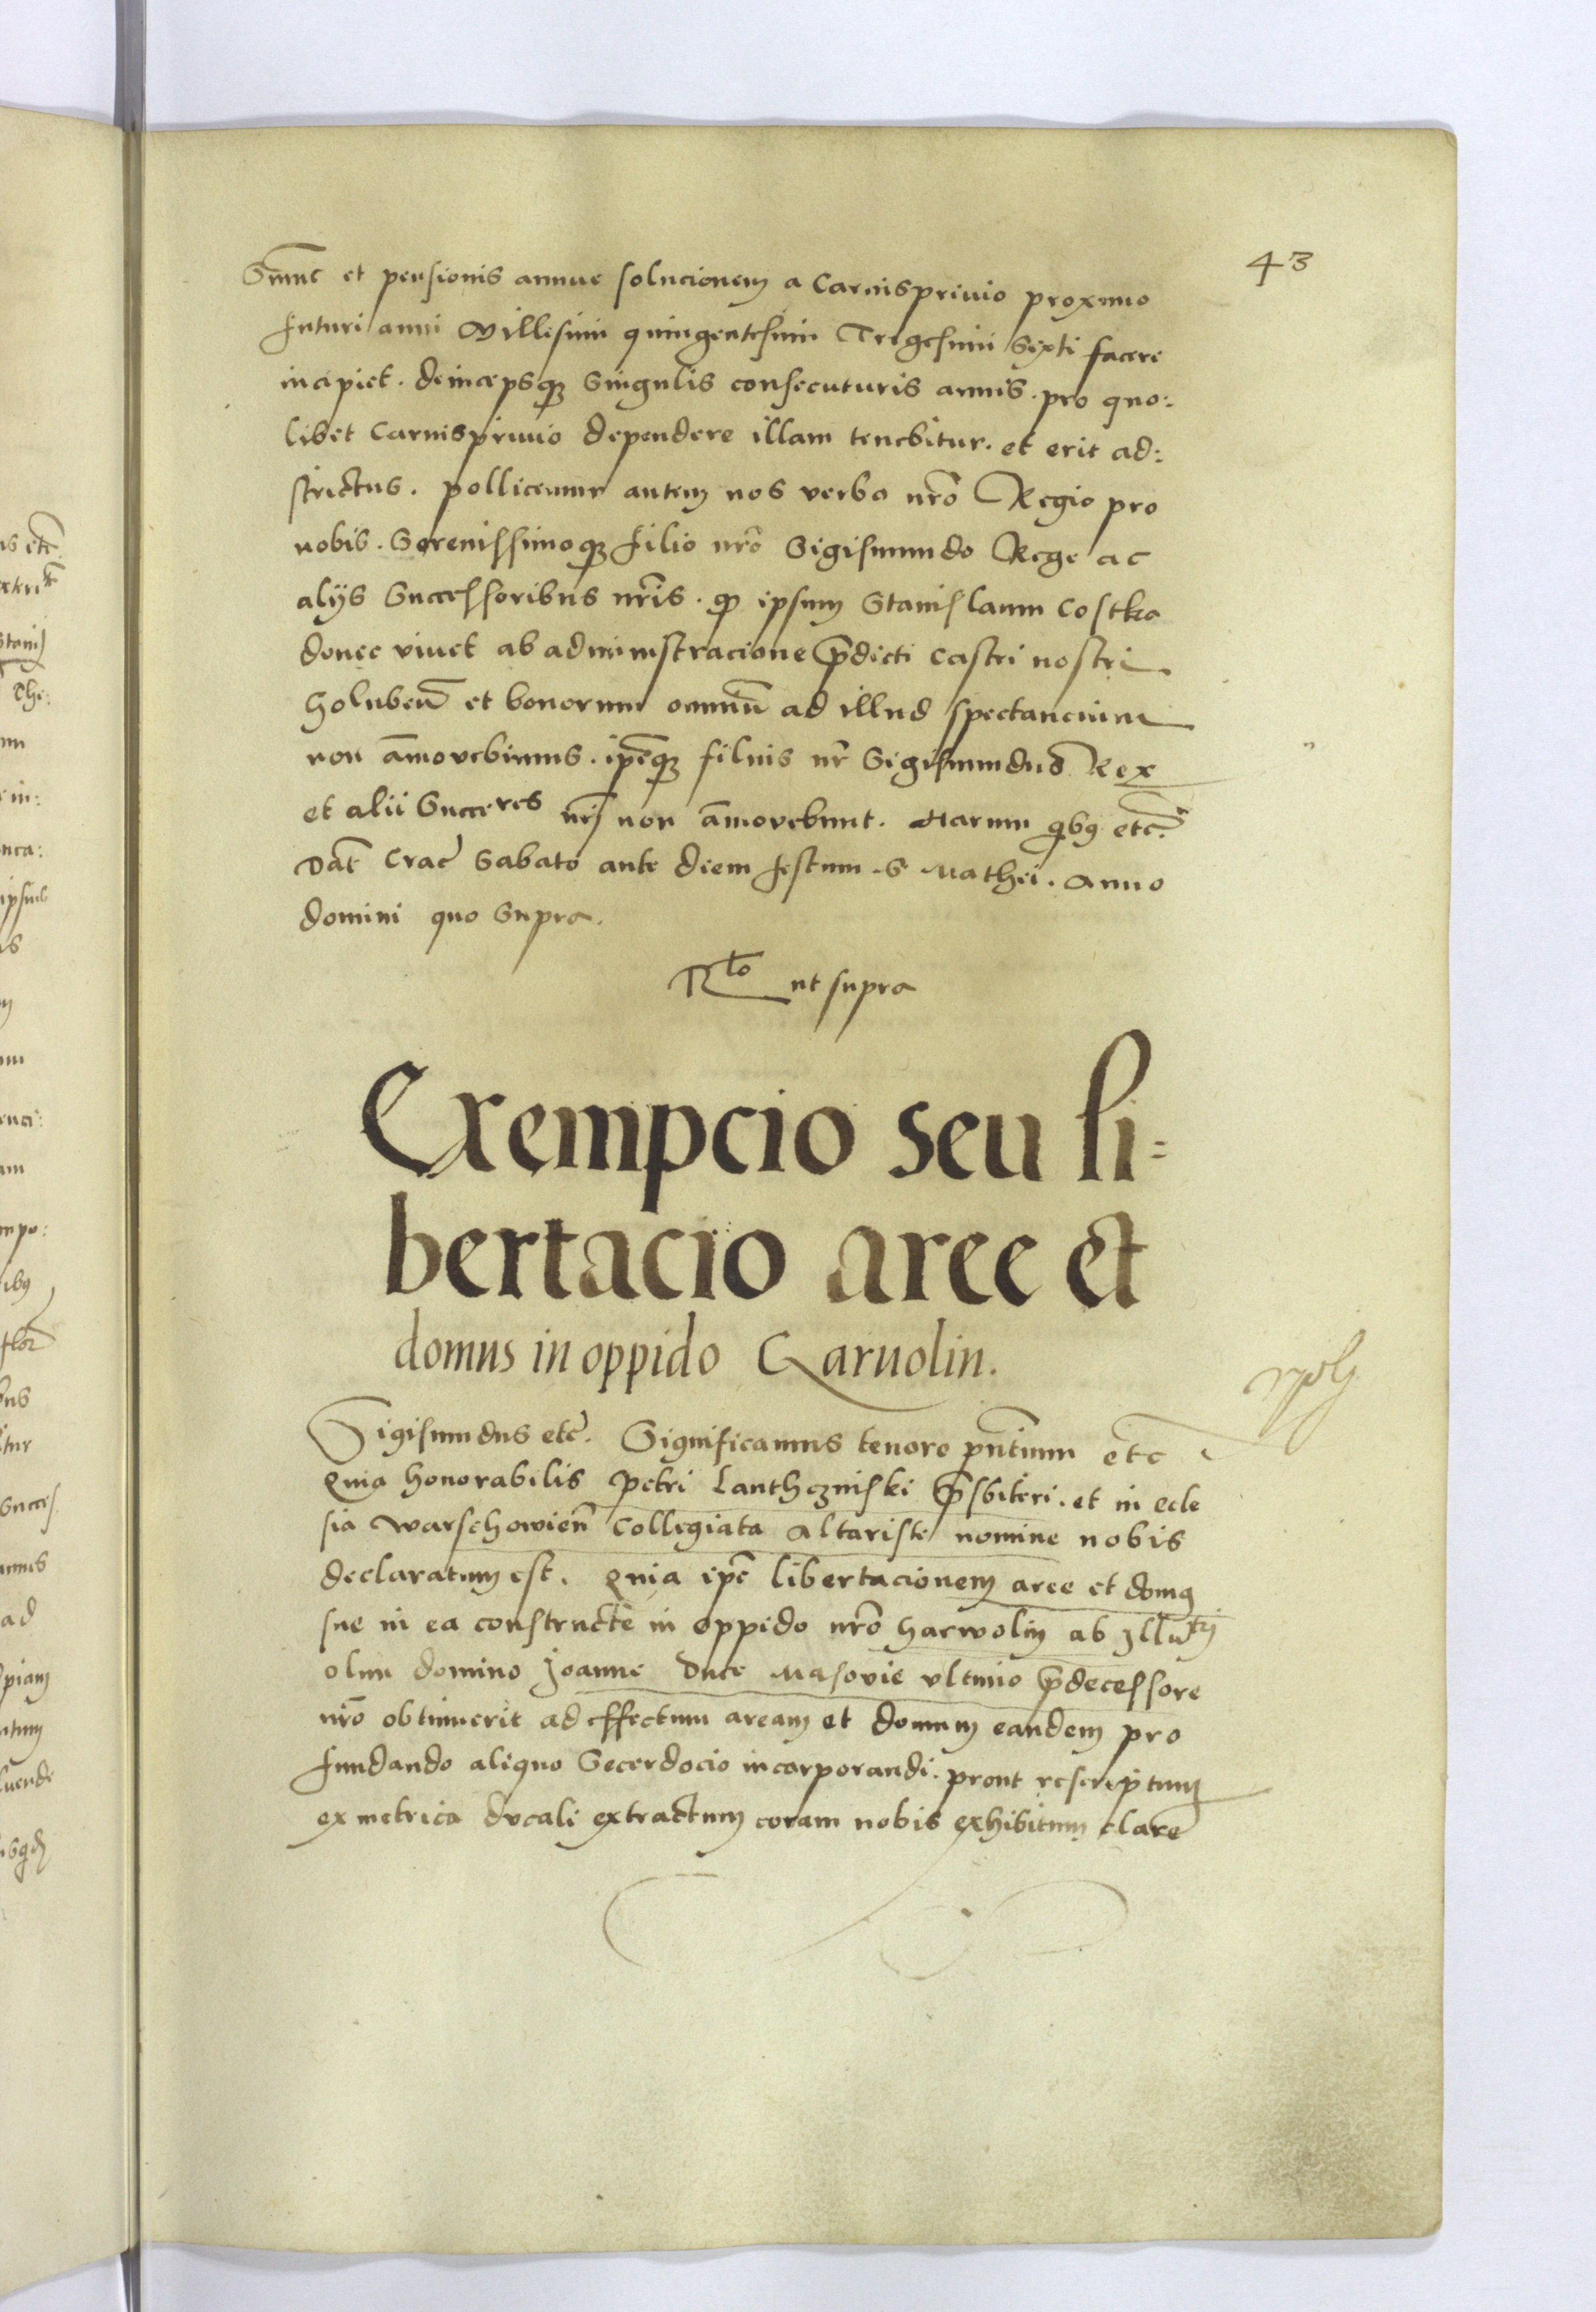 43
Summe et pensionis annue solucionem a Carnisprivio proximo
futuri anni Millesimi quingentesimi Trigesimi Sexti facere
incipiet. deincepsq3 Singulis consecuturis annis. pro quo:
libet Carnisprivio dependere illam tenebitur. et erit ad:
strictus. pollicemur autem nos verbo nr̃o Regio pro
nobis. Serenissimoq3 filio nr̃o Sigismundo Rege ac
alijs Successoribus nr̃is. ꝙ ipsum Stanislaum Costka
donec vivet ab administracione p̃dicti Castri nostri
Holubeñ et bonorum omniũ ad illud spectancium
non ãmovebimus. ip̃eq3 filius nr̃ Sigismundus Rex
et alii Succeres nr̃j non ãmovebunt. Harum qibꝰ etc̃.
Dat̃ Crac̃ Sabato ante diem festum S Mathei. Anno
domini quo Supra.
Rto ut supra
Exempcio seu li=
bertacio aree et
domus in oppido Garuolin.
Sigismundus etc̃. Significamus tenore pñtium etc
Quia honorabilis Petri Lanthczniski p̃sbiteri. et in ecle
sia Warschowieñ Collegiata Altariste nomine nobis
declaratum est. Quia ip̃e libertacionem aree et domꝰ
sue in ea constructe in oppido nr̃o Harwolin ab Illutrj
olim domino Joanne Duce Masovie ultimo p̃decessore
nr̃o obtinuerit ad effectum aream et domum eandem pro
fundando aliquo Secerdocio incorporandi. prout rescriptum
ex metrica ducali extractum coram nobis exhibitum clare